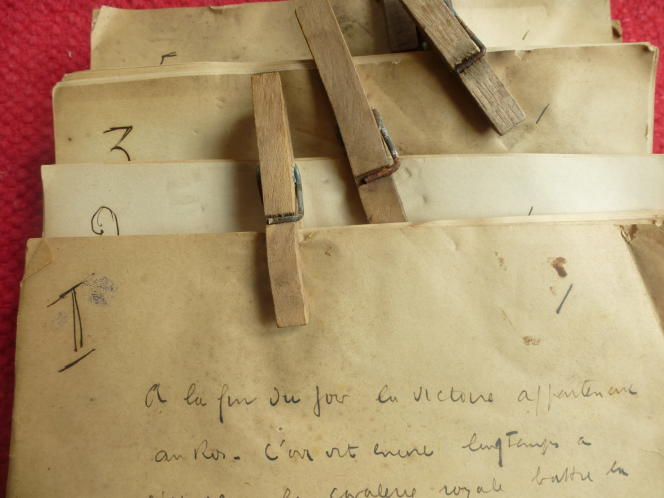 5
3
2
I
A la fin du jour la victoire
au Roi. encore longtemps
la cavalerie royale battre la